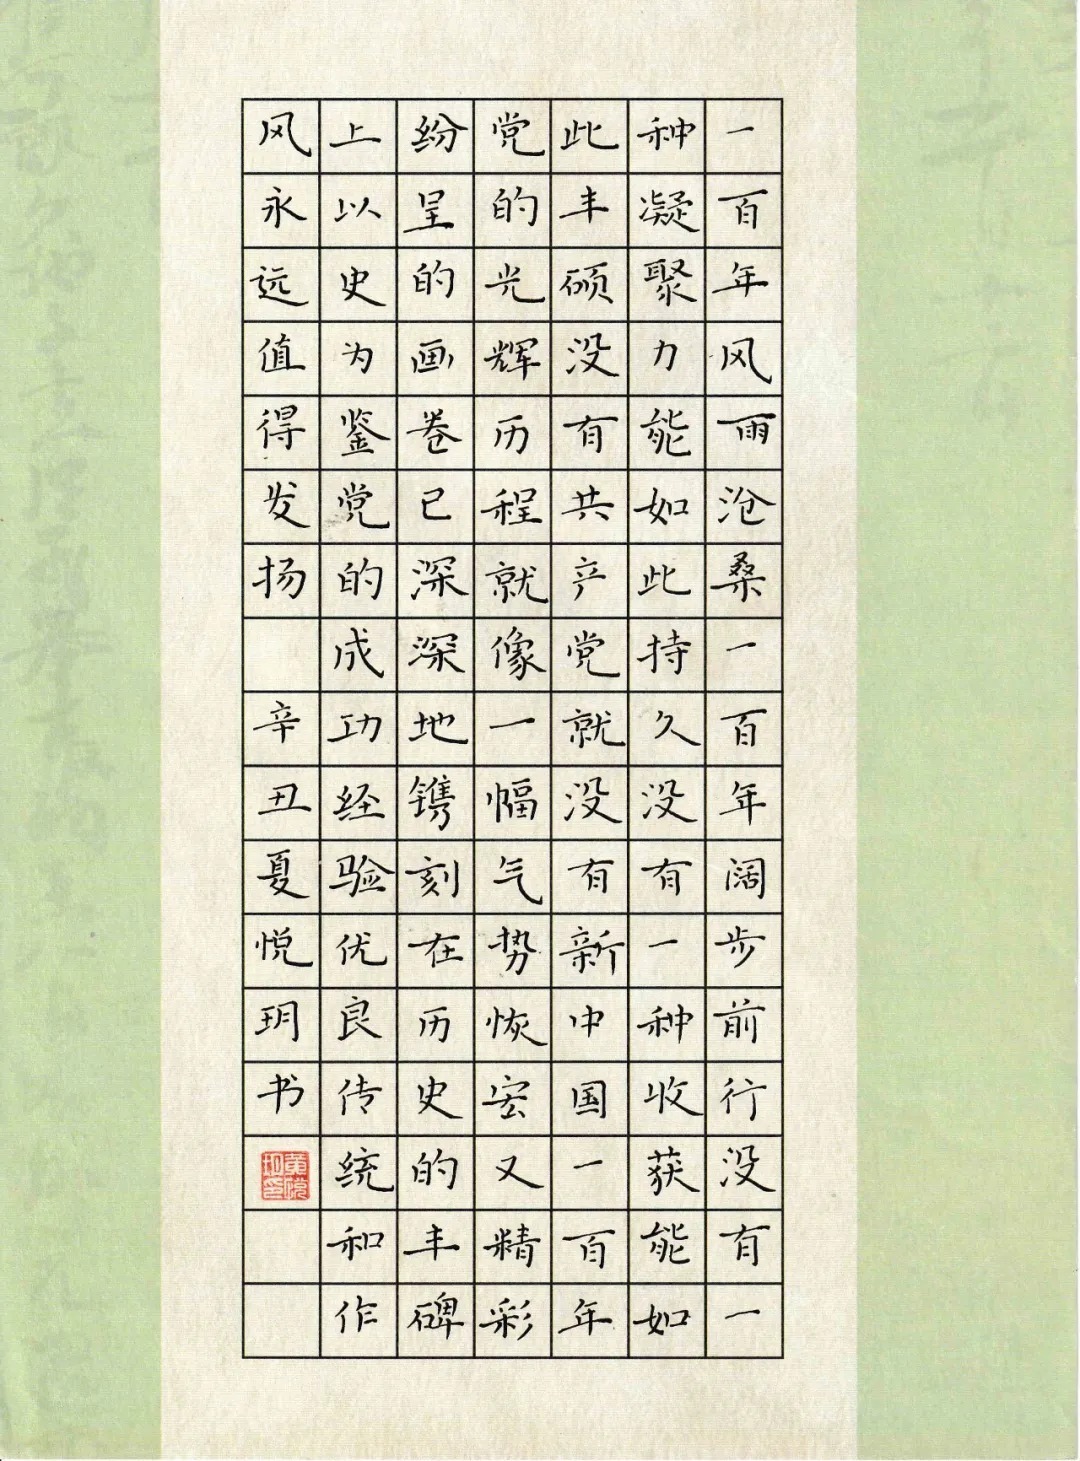 一百年风雨沧桑一百年阔步前行没有一
种凝聚力能如此持久没有一种收获能如
此丰硕没有共产党就没有新中国一百年
党的光辉历程就像一幅气势恢宏又精彩
纷呈的画卷已深深地镌刻在历史的丰碑
上以史为鉴党的成功经验优良传统和作
风永远值得发扬 辛丑夏悦玥书